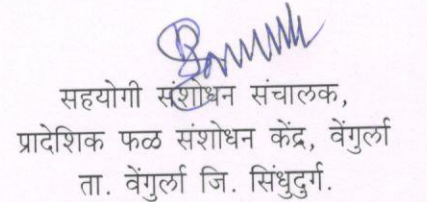 सहयोगी संशोधन संचालक,
प्रादेशिक फळ संशोधन केंद्र, वेंगुर्ला
ता. वेंगुर्ला जि. सिंधुदुर्ग.